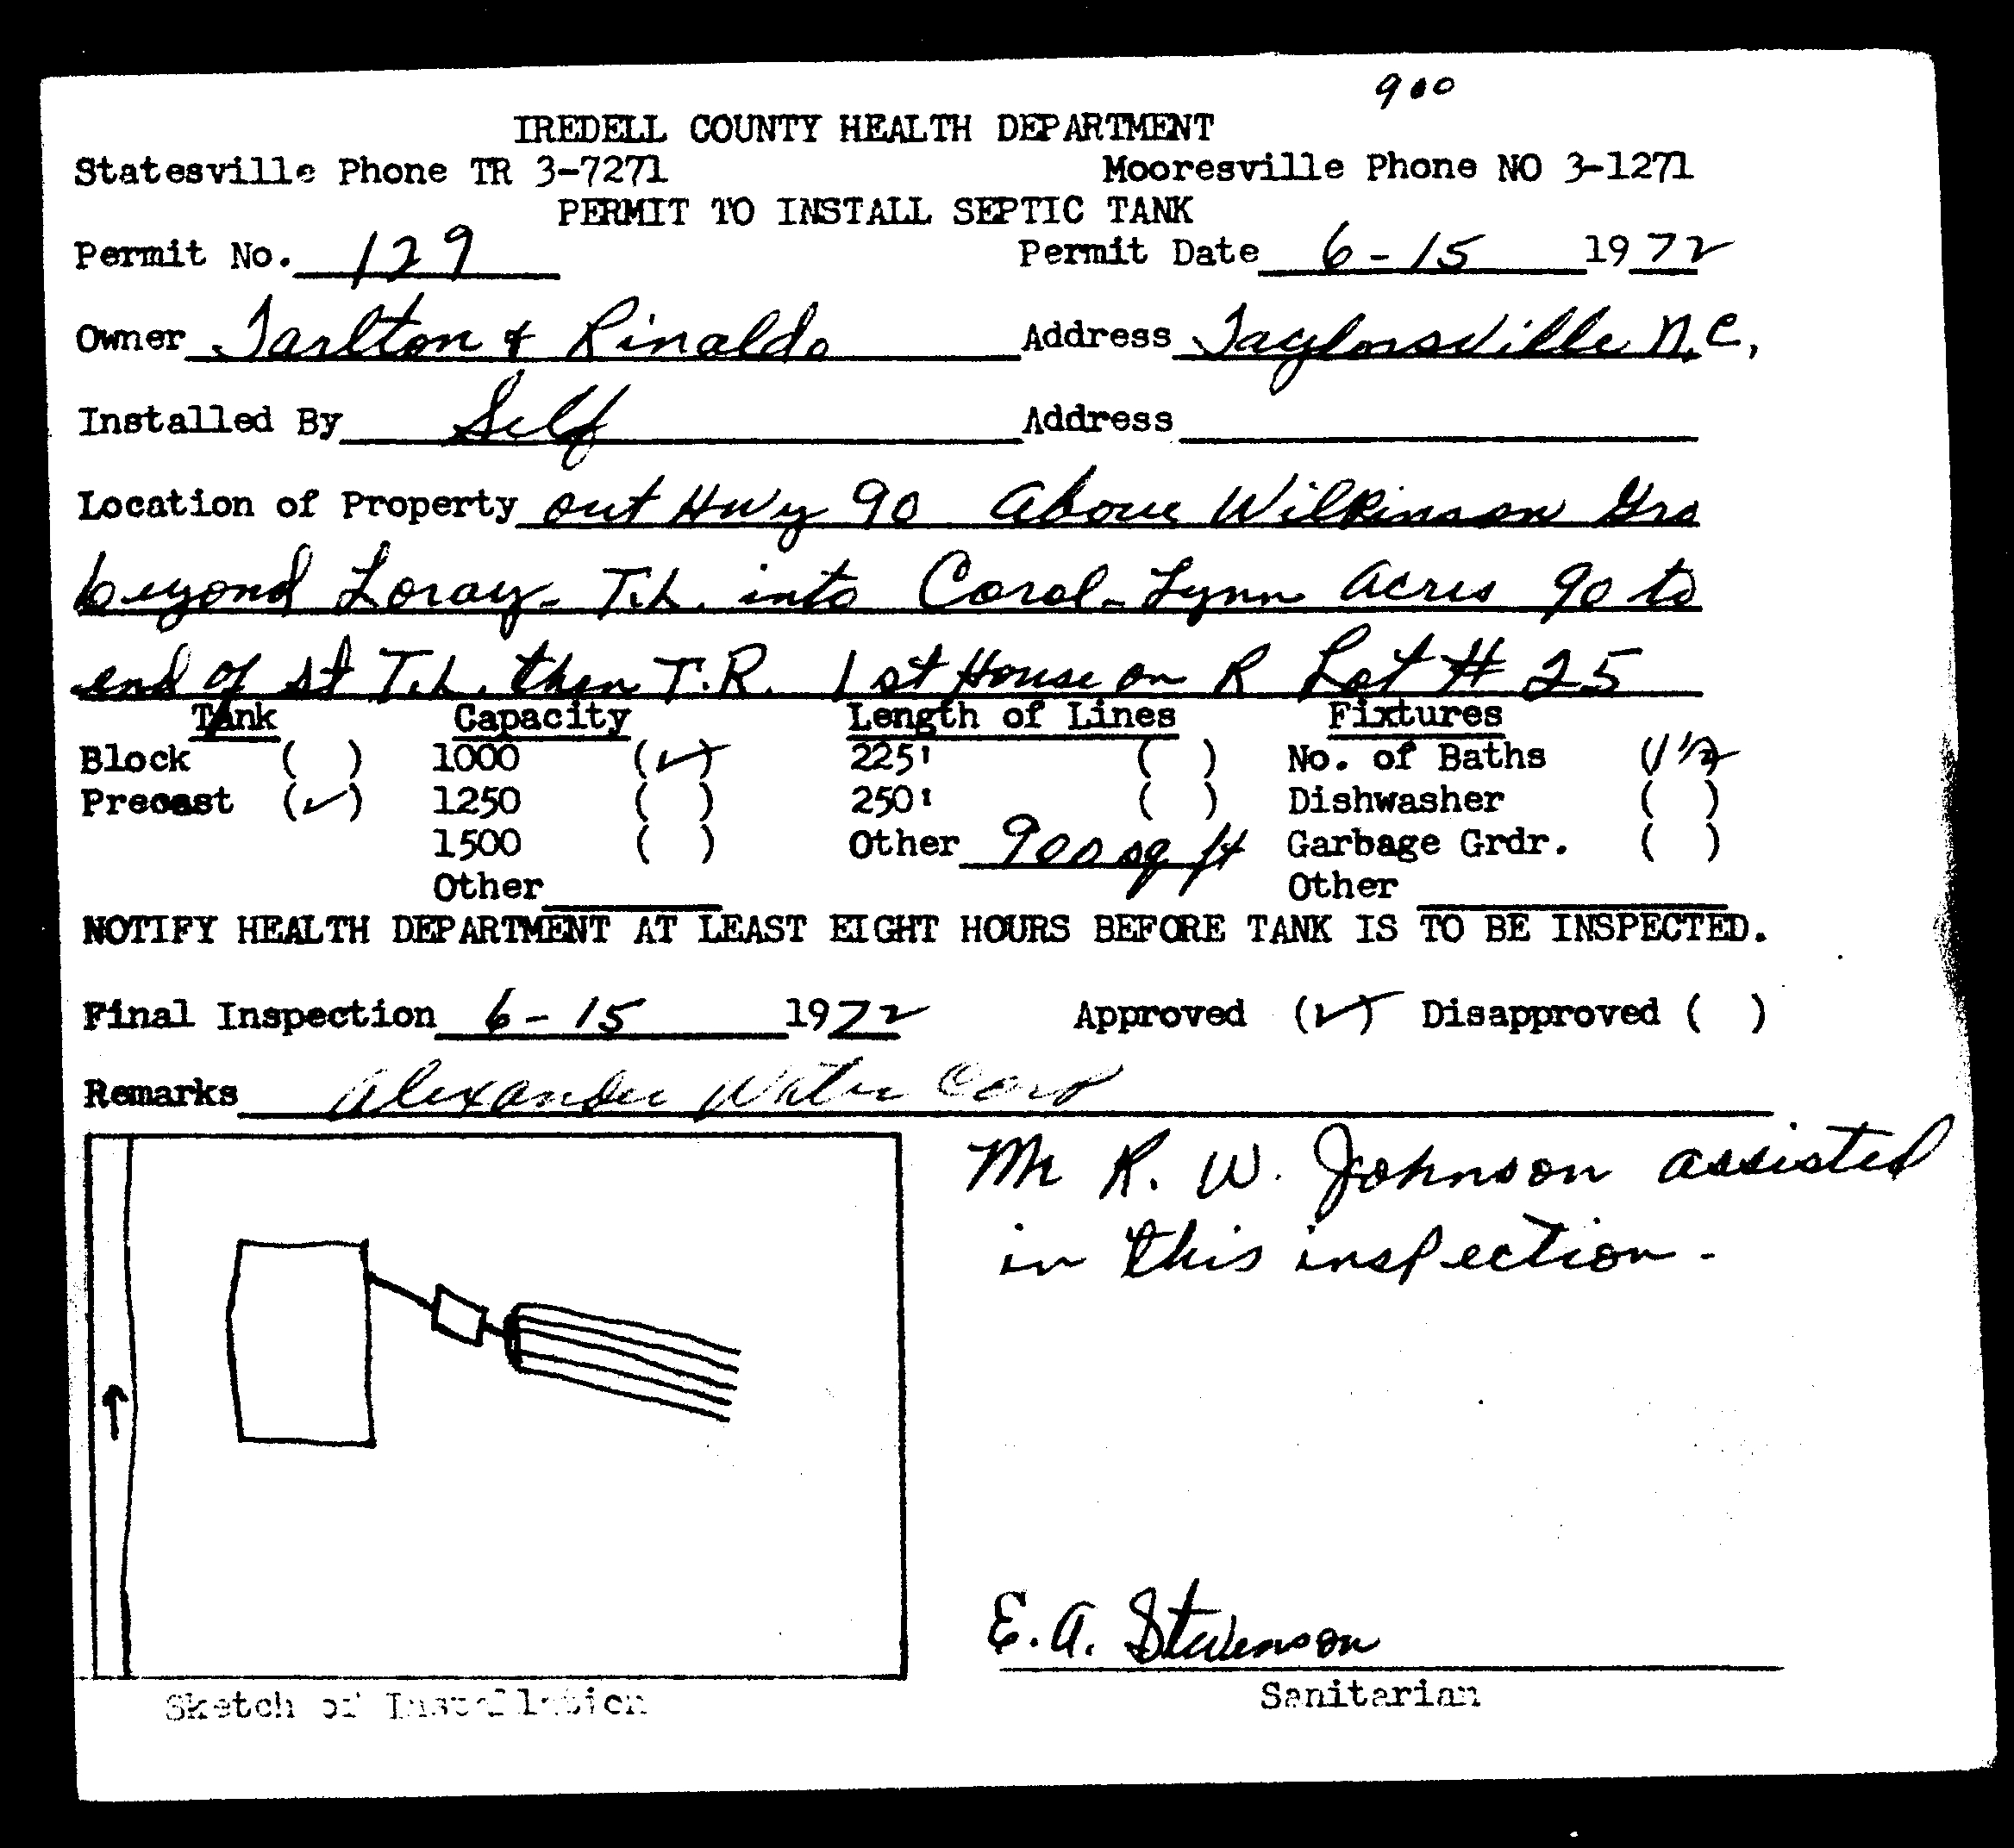 900
IREDELL COUNTY HEALTH DEPARTMENT
Statesville Phone TR 3-7271 Mooresville Phone NO 3-1271
PERMIT TO INSTALL SEPTIC TANK
Permit No. 129 Permit Date 6-15 1972
Owner Tarlton & Rinaldo Address Taylorsville N.C,
Installed By Self Address
Location of Property out Hwy 90 above Wilkinson Gro
beyond Loray - T.L. into Carol-Lynn Acres go to
end of st T.L. then T.R. 1st House on R Lot # 25
Tank Capacity Length of Lines Fixtures
Block ( ) 1000 (✓) 225' ( ) No. of Baths (1 1/2)
Precast (✓) 1250 ( ) 250' ( ) Dishwasher ( )
1500 ( ) Other 900 sq ft Garbage Grdr. ( )
Other Other
NOTIFY HEALTH DEPARTMENT AT LEAST EIGHT HOURS BEFORE TANK IS TO BE INSPECTED.
Final Inspection 6-15 1972 Approved (✓) Disapproved ( )
Remarks Alexander Water Corp
Mr R. W. Johnson assisted
in this inspection -
E. A. Stevenson
Sketch of Installation Sanitarian